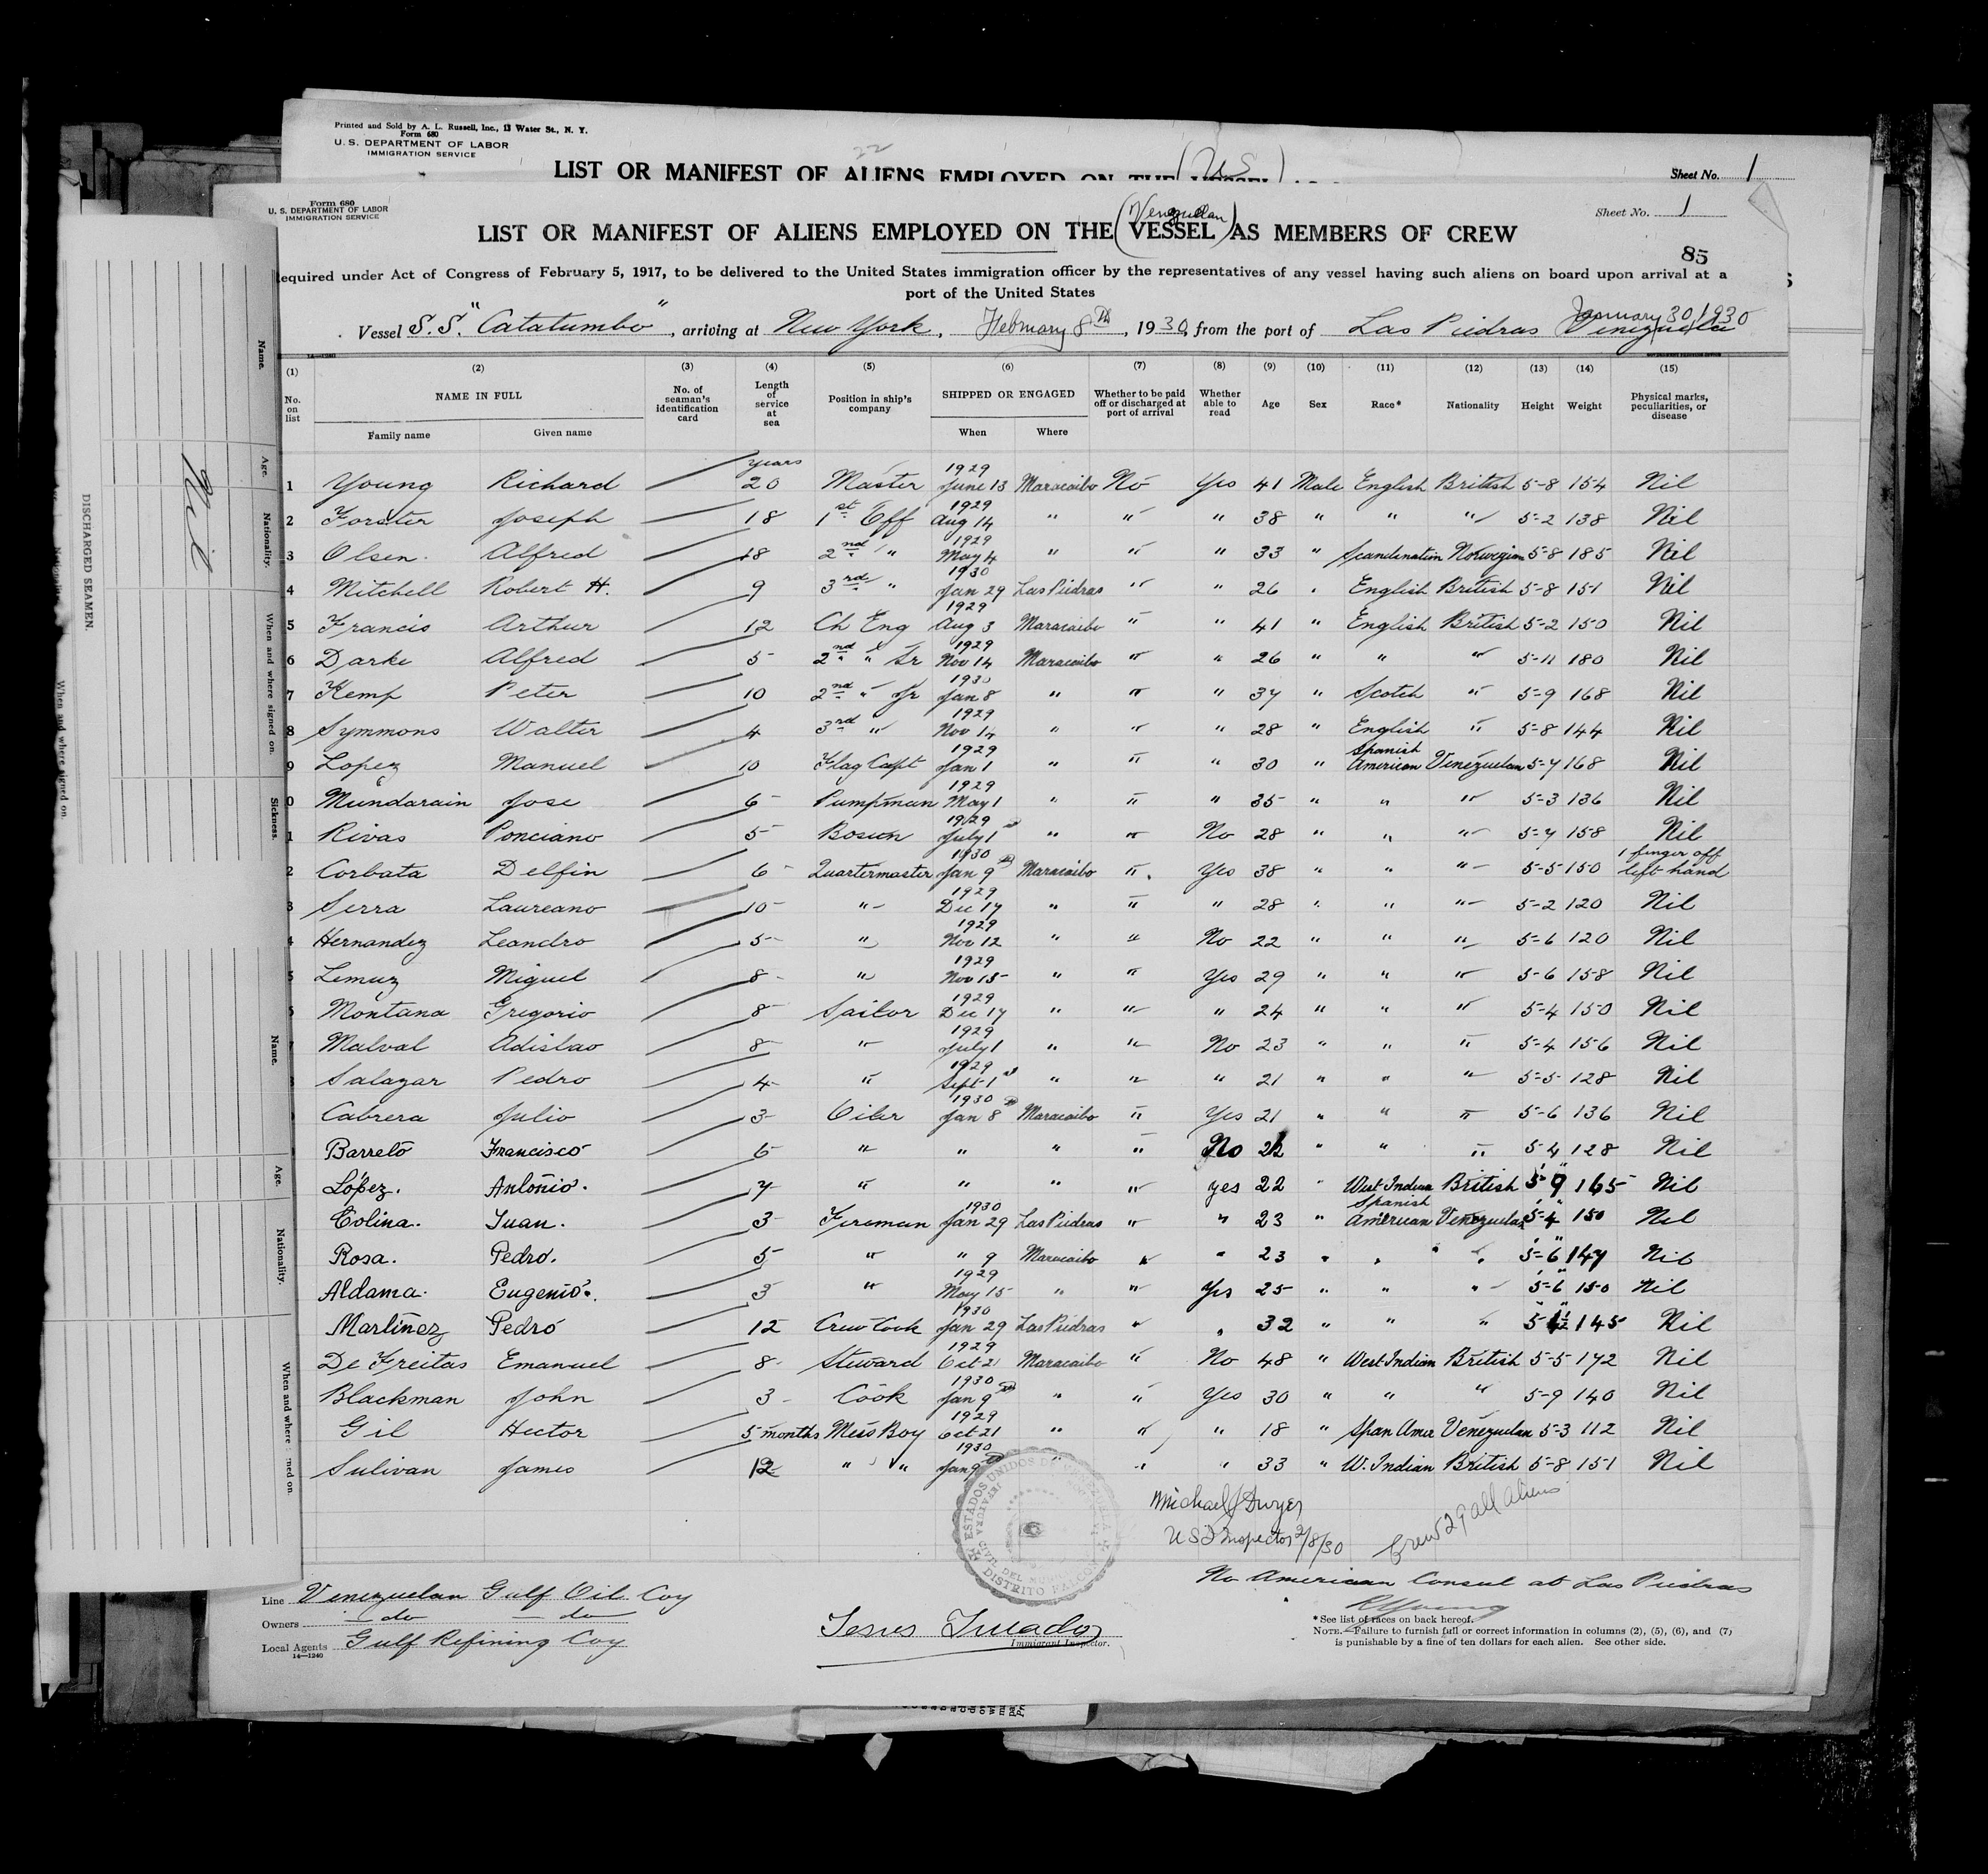 Printed and Sold by A. L. Russell, Inc., 13 Water St., N. Y.
Form 680
U. S. DEPARTMENT OF LABOR
IMMIGRATION SERVICE
22
LIST OR MANIFEST OF ALIENS EMPLOYED ON THE (U S) VESSEL
Sheet No. 1
Form 680
U. S. DEPARTMENT OF LABOR
IMMIGRATION SERVICE
Sheet No. 1
(Venezuelan)
LIST OR MANIFEST OF ALIENS EMPLOYED ON THE VESSEL AS MEMBERS OF CREW
85
equired under Act of Congress of February 5, 1917, to be delivered to the United States immigration officer by the representatives of any vessel having such aliens on board upon arrival at a
port of the United States
January 30, 1930
Vessel S.S. "Catatumbo", arriving at New York, February 8th, 1930, from the port of Las Piedras Venezuela
(1) (2) (3) (4) (5) (6) (7) (8) (9) (10) (11) (12) (13) (14) (15)
No. on list NAME IN FULL No. of seaman's identification card Length of service at sea Position in ship's company SHIPPED OR ENGAGED Whether to be paid off or discharged at port of arrival Whether able to read Age Sex Race* Nationality Height Weight Physical marks, peculiarities, or disease
Family name Given name When Where
1 Young Richard years 20 Master 1929 June 13 Maracaibo No Yes 41 Male English British 5-8 154 Nil
2 Forster Joseph 18 1st Off 1929 Aug 14 " " " 38 " " " 5-2 138 Nil
3 Olsen Alfred 18 2nd " 1929 May 4 " " " 33 " Scandenatian Norwegian 5-8 185 Nil
4 Mitchell Robert H. 9 3rd " 1930 Jan 29 Las Piedras " " 26 " English British 5-8 151 Nil
5 Francis Arthur 12 Ch Eng 1929 Aug 3 Maracaibo " " 41 " English British 5-2 150 Nil
6 Darke Alfred 5 2nd " Sr 1929 Nov 14 Maracaibo " " 26 " " " 5-11 180 Nil
7 Kemp Peter 10 2nd " Jr 1930 Jan 8 " " " 37 " Scotch " 5-9 168 Nil
8 Symmons Walter 4 3rd " 1929 Nov 14 " " " 28 " English " 5-8 144 Nil
9 Lopez Manuel 10 Flag Capt 1929 Jan 1 " " " 30 " Spanish American Venezuelan 5-7 168 Nil
0 Mundarain Jose 6 Pumpman 1929 May 1 " " " 35 " " " 5-3 136 Nil
1 Rivas Ponciano 5 Bosun 1929 July 1 " " No 28 " " " 5-7 158 Nil
2 Corbata Delfin 6 Quartermaster 1930 Jan 9 Maracaibo " Yes 38 " " " 5-5 150 1 finger off left hand
3 Serra Laureano 10 " 1929 Dec 17 " " " 28 " " " 5-2 120 Nil
4 Hernandez Leandro 5 " 1929 Nov 12 " " No 22 " " " 5-6 120 Nil
5 Lemuz Miguel 8 " 1929 Nov 15 " " Yes 29 " " " 5-6 158 Nil
Montana Gregorio 8 Sailor 1929 Dec 17 " " " 24 " " " 5-4 150 Nil
7 Malval Adislao 8 " 1929 July 1 " " No 23 " " " 5-4 156 Nil
Salazar Pedro 4 " 1929 Sept 1 " " " 21 " " " 5-5 128 Nil
Cabrera Julio 3 Oiler 1930 Jan 8 Maracaibo " Yes 21 " " " 5-6 136 Nil
Barreto Francisco 6 " " " " No " " " 5-4 128 Nil
López. Antonio. 7 " " " " yes 22 " West Indian British 5-9 165 Nil
Colina. Juan. 3 Fireman 1930 Jan 29 Las Piedras " " 23 " Spanish American Venezuelan 5-4 150 Nil
Rosa. Pedro. 5 " " 9 Maracaibo " " 23 " " " 5-6 147 Nil
Aldama. Eugenio. 3 " 1929 May 15 " " Yes 25 " " " 5-6 150 Nil
Martínez Pedro 12 Crew Cook 1930 Jan 29 Las Piedras " " 32 " " " 145 Nil
De Freitas Emanuel 8 Steward 1929 Oct 21 Maracaibo " No 48 " West Indian British 5-5 172 Nil
Blackman John 3 Cook 1930 Jan 9 " " Yes 30 " " " 5-9 140 Nil
Gil Hector 5 months Mess Boy 1929 Oct 21 " " " 18 " Span Amer Venezuelan 5-3 112 Nil
Sulivan James 12 " " 1930 Jan 9 " " " 33 " W. Indian British 5-8 151 Nil
ESTADOS UNIDOS DE VENEZUELA
DISTRITO FALCON
Michael J Dwyer
U S I Inspector 2/8/30
Crew 29 all aliens
No American Consul at Las Piedras
R Young
Line Venezuelan Gulf Oil Coy
Owners do do
Local Agents Gulf Refining Coy
14—1240
Immigrant Inspector.
*See list of races on back hereof.
NOTE.—Failure to furnish full or correct information in columns (2), (5), (6), and (7)
is punishable by a fine of ten dollars for each alien. See other side.
Name.
Age.
Nationality.
When and where signed on.
Sickness.
Nil
DISCHARGED SEAMEN.
When and where signed on.
Name.
Age.
Nationality.